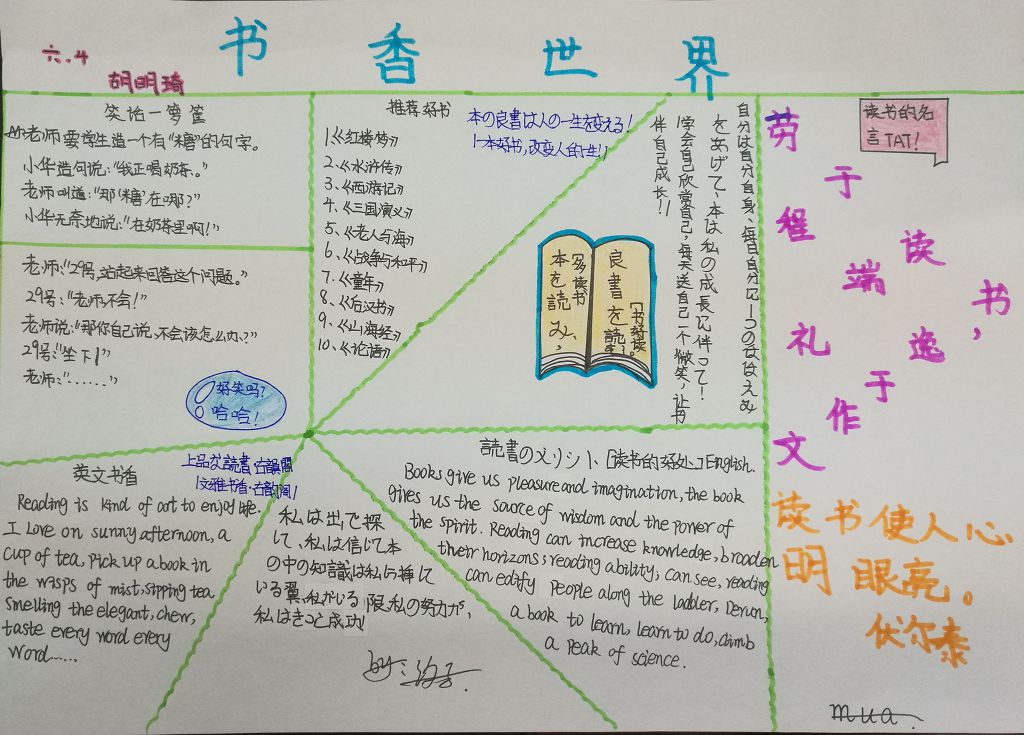 书香世界
六.4
胡明琦
笑话一箩筐
老师要学生造一个有“糖”的句字。
小华造句说:“我正喝奶茶。”
老师叫道:“那‘糖’在哪?”
小华无奈地说:“在奶茶里啊!”
老师:“29号,站起来回答这个问题。”
29号:“老师,不会!”
老师说:“那你自己说,不会该怎么办?”
29号:“坐下!”
老师:“......”
好笑吗?
哈哈!
推荐好书
1、《红楼梦》
2、《水浒传》
3、《西游记》
4、《三国演义》
5、《老人与海》
6、《战争与和平》
7、《童年》
8、《后汉书》
9、《山海经》
10、《论语》
本の良書は人の一生を変える!
[一本好书,改变人的一生!]
自分は自分自身、毎日自分に一つのほほえみ
をあげて、本は私の成長に伴って!
[学会自己欣赏自己,每天送自己一个微笑,让书
伴自己成长!]
良書を読
[书好读
多读书
本を読み,
读书的名
言TAT!
劳于读书,
逸于作文
程端礼
读书使人心
明眼亮。
伏尔泰
mua.
英文书香
Reading is kind of art to enjoy life.
I Love on sunny afternoon, a
cup of tea, pick up a book in
the wisps of mist, sipping tea
smelling the elegant, chew,
taste every word every
word......
上品な読書·古韻閣
[文雅书香·古韵阁]
私は出で探
して、私は信じて本
の中の知識は私に挿して
いる翼、私がいる限、私の努力が、
私はきっと成功!
by:
読書のメリット、[读书的好处、]English.
Books give us pleasure and imagination, the book
gives us the source of wisdom and the power of
the spirit. Reading can increase knowledge, broaden
their horizons; reading ability; can see, reading
can edify people along the ladder, Derun,
a book to learn, learn to do, climb
a peak of science.